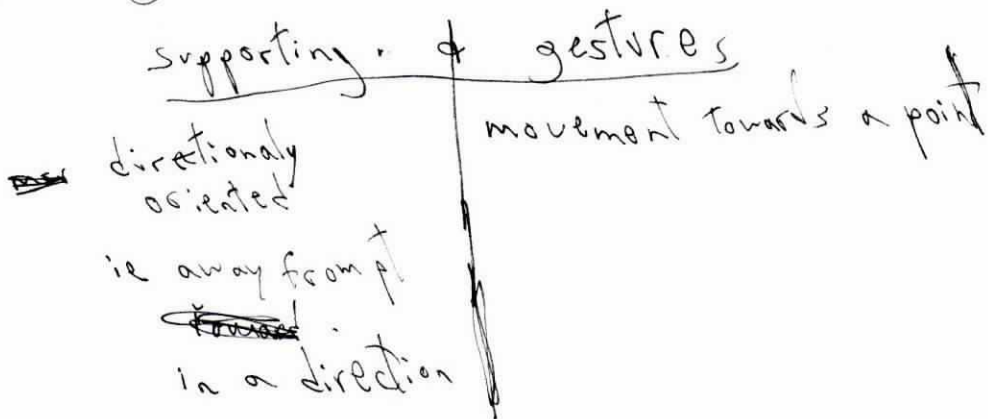 supporting. & gestures
directionaly
oriented
ie away from pt
in a direction
movement towards a point